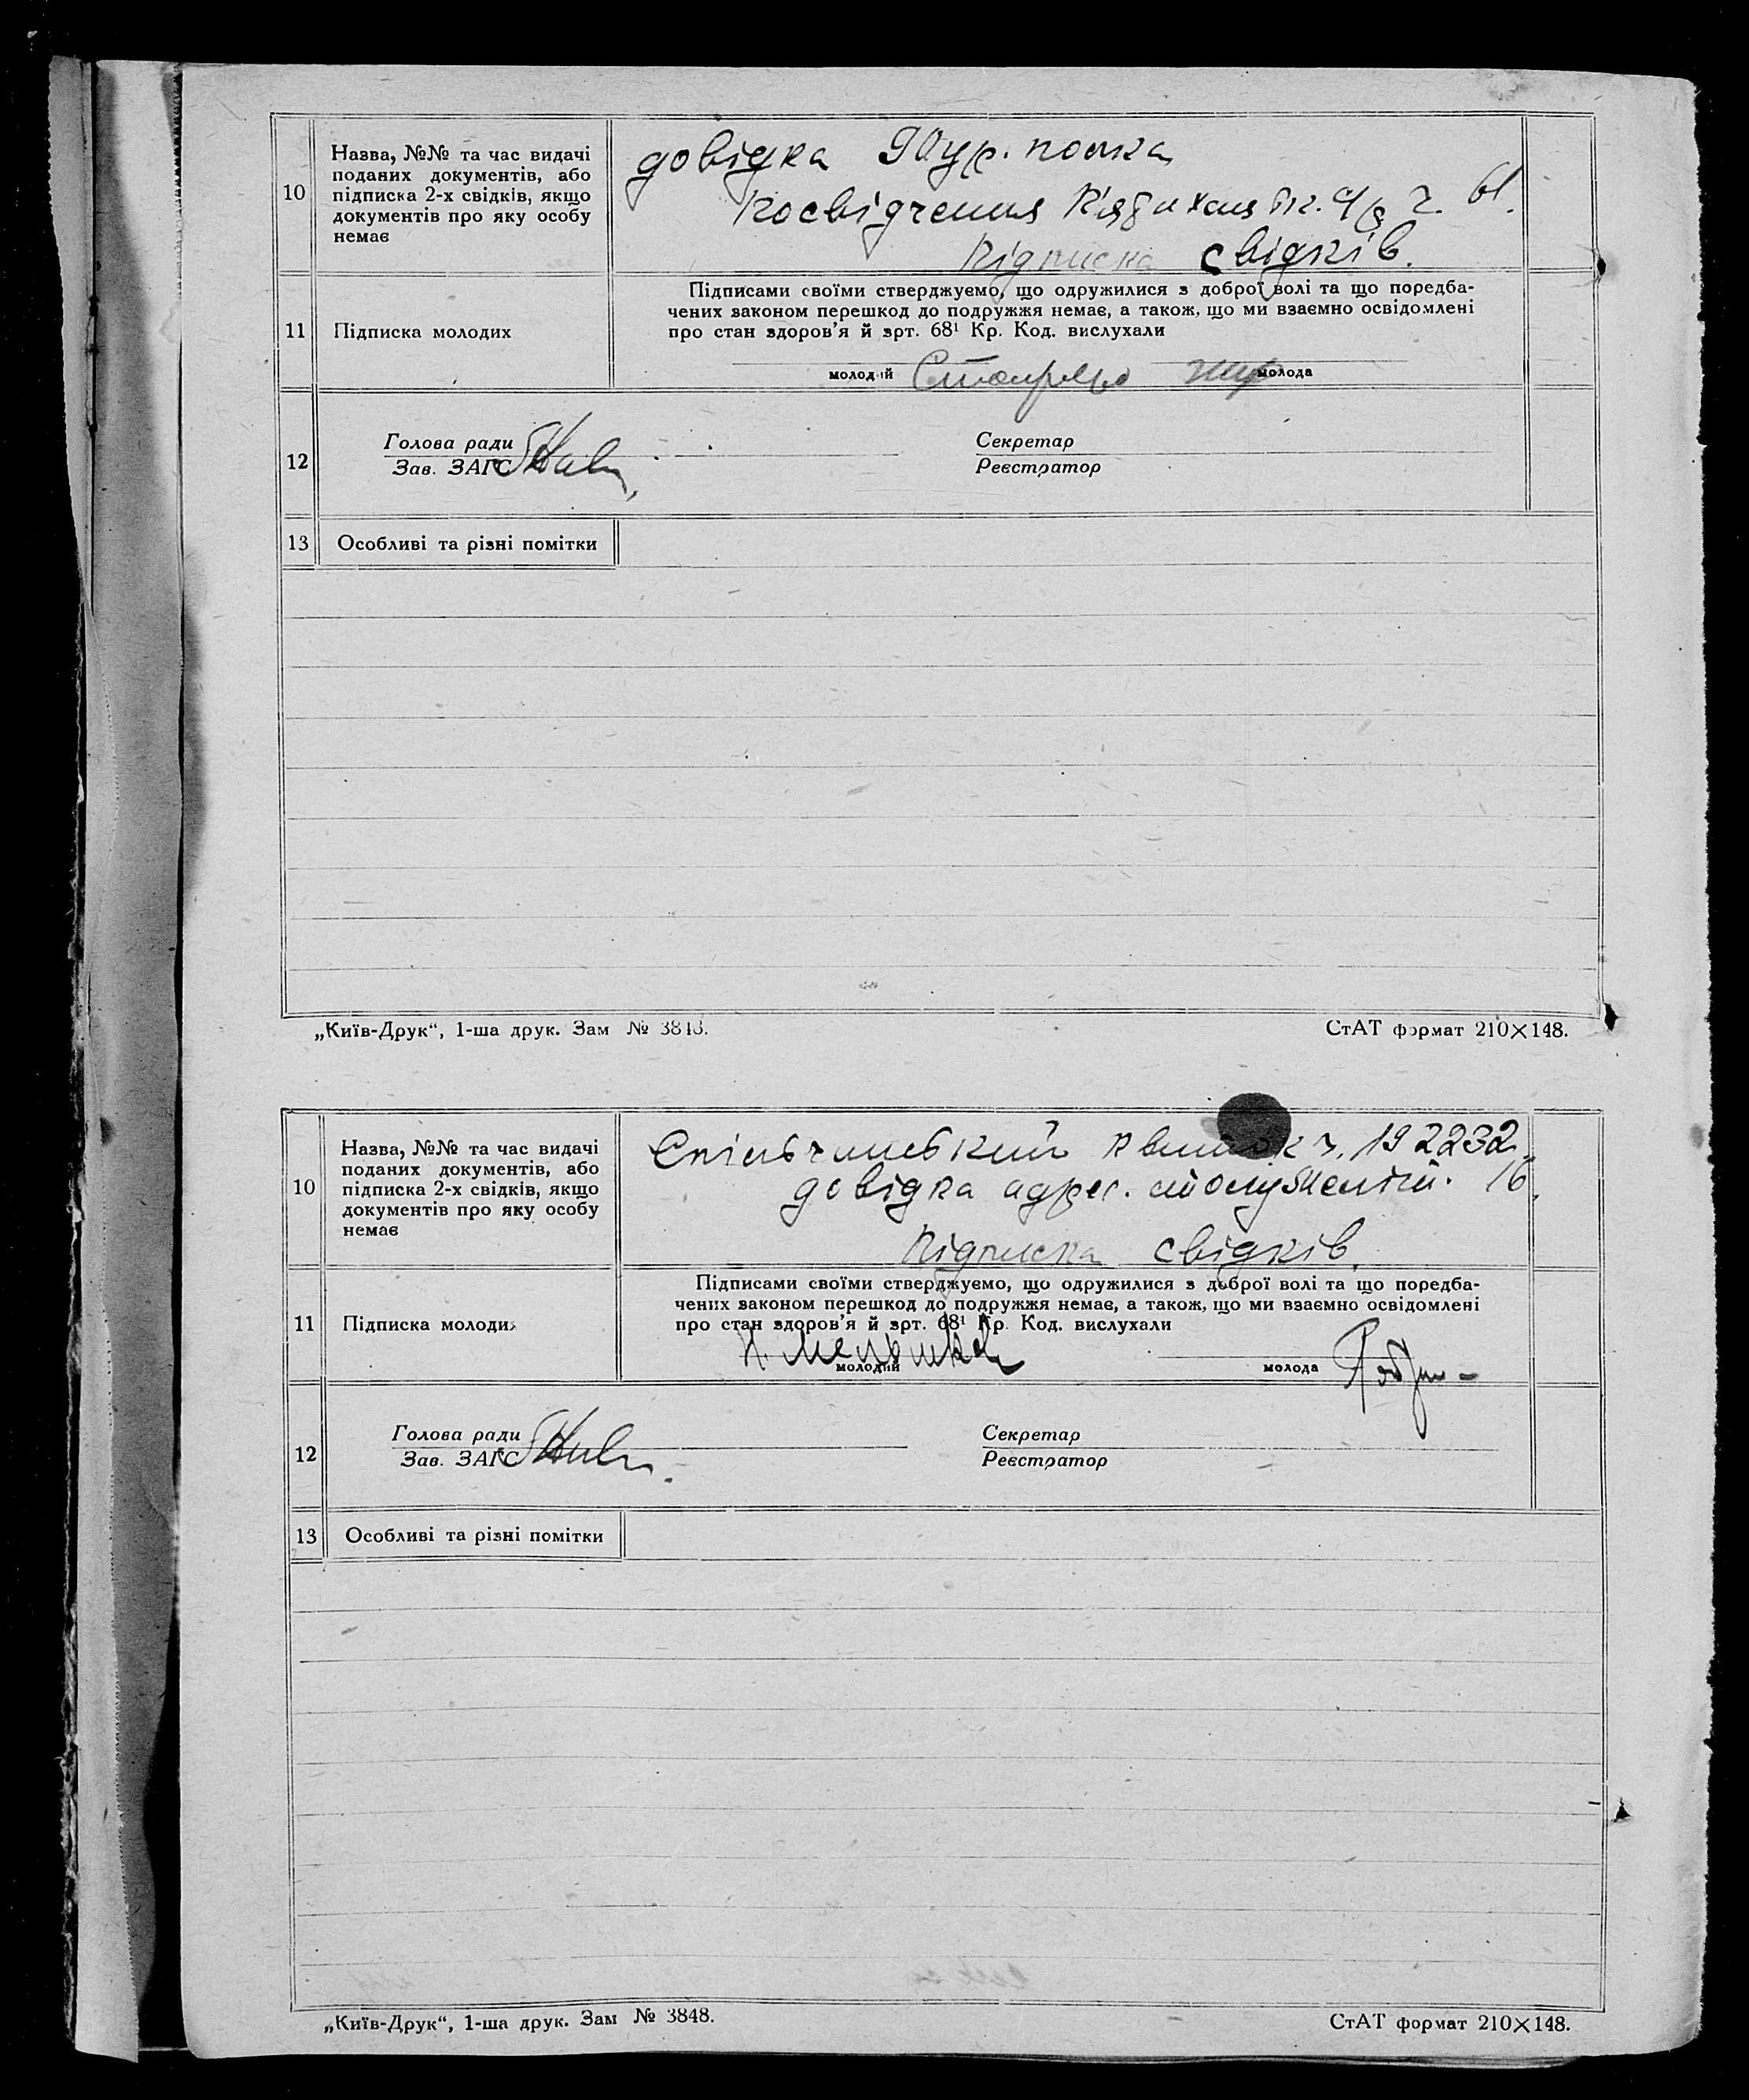 10
Назва, №№ та час видачі
поданих документів, або
підписка 2-х свідків, якщо
документів про яку особу
немає
довідка полка
посвідчення ч. 61.
Підписка свідків.
11
Підписка молодих
Підписами своїми стверджуемо, що одружилися з доброї волі та що поредба-
чених законом перешкод до подружжя немає, а також, що ми взаємно освідомлені
про стан здоров'я й зрт. 68¹ Кр. Код. вислухали
молодий молода
12
Голова ради
Зав. ЗАГС
Секретар
Реєстратор
13
Особливі та різні помітки
„Київ-Друк“, 1-ша друк. Зам № 3848.
СтАТ формат 210×148.
10
Назва, №№ та час видачі
поданих документів, або
підписка 2-х свідків, якщо
документів про яку особу
немає
Спільчанський квиток ч. 192232.
довідка адрес. 16.
Підписка свідків.
11
Підписка молодих
Підписами своїми стверджуемо, що одружилися з доброї волі та що поредба-
чених законом перешкод до подружжя немає, а також, що ми взаємно освідомлені
про стан здоров'я й зрт. 68¹ Кр. Код. вислухали
молодий молода
12
Голова ради
Зав. ЗАГС
Секретар
Реєстратор
13
Особливі та різні помітки
„Київ-Друк“, 1-ша друк. Зам № 3848.
СтАТ формат 210×148.